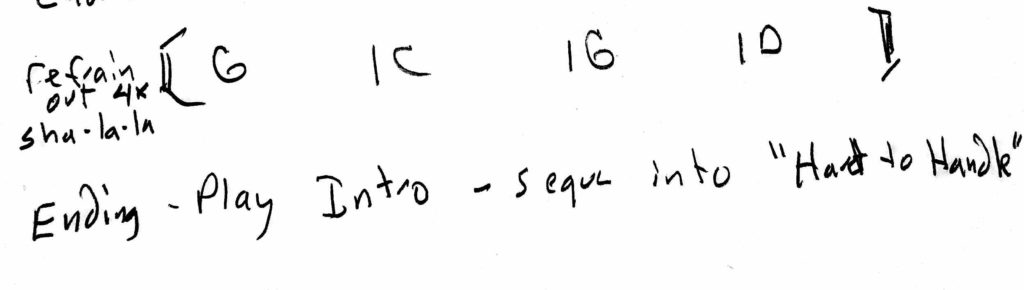 refrain [ G | C | G | D ]
out 4x
sha-la-la
Ending - Play Intro - segue into "Hard to Handle"